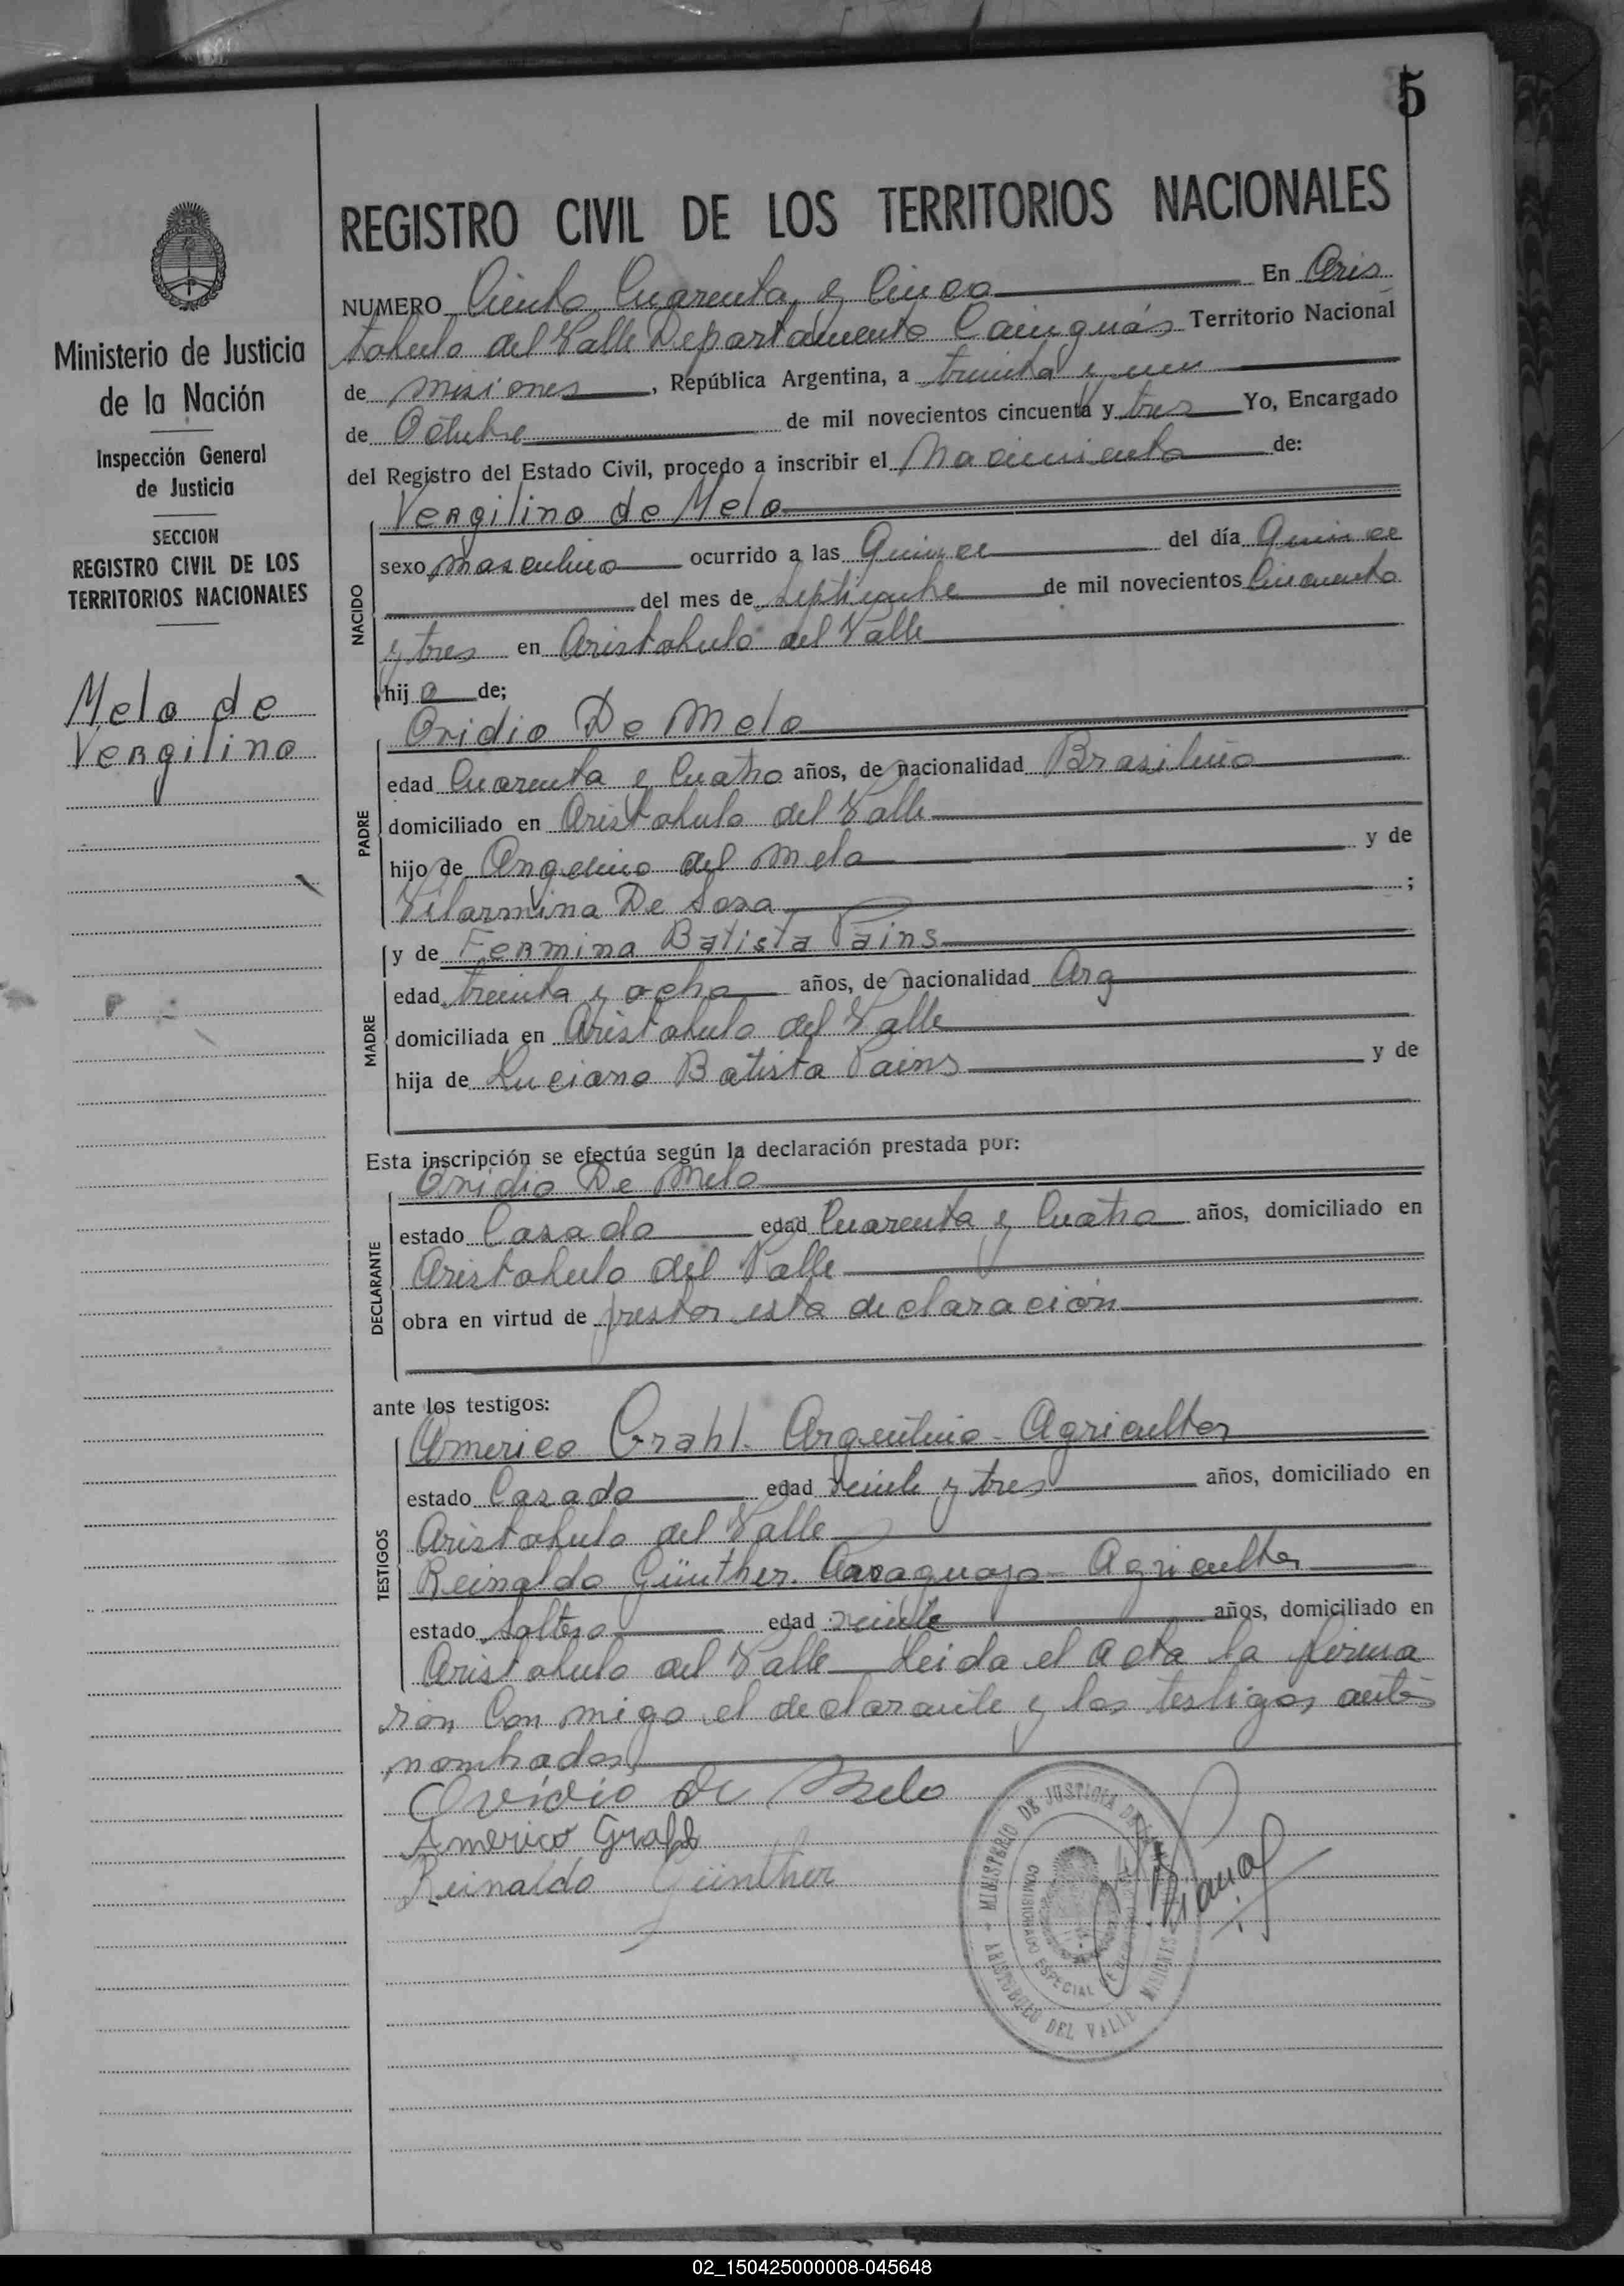 5
REGISTRO CIVIL DE LOS TERRITORIOS NACIONALES
Ministerio de Justicia
de la Nación
Inspección General
de Justicia
SECCION
REGISTRO CIVIL DE LOS
TERRITORIOS NACIONALES
Melo de
Vergilino
NUMERO Ciento Cuarenta y Cinco En Aris
tobulo del Valle Departamento Cainguás Territorio Nacional
de Misiones, República Argentina, a treinta y un
de Octubre de mil novecientos cincuenta y tres Yo, Encargado
del Registro del Estado Civil, procedo a inscribir el Nacimiento de:
NACIDO
Vergilino de Melo
sexo masculino ocurrido a las Quince del día Quince
del mes de septiembre de mil novecientos Cincuenta
y tres en Aristobulo del Valle
hijo de;
PADRE
Ovidio De Melo
edad Cuarenta y Cuatro años, de nacionalidad Brasilino
domiciliado en Aristobulo del Valle
hijo de Angelino del Melo y de
Vilarmina De Sosa ;
MADRE
y de Fermina Batista Pains
edad treinta y ocho años, de nacionalidad Arg
domiciliada en Aristobulo del Valle
hija de Luciano Batista Pains y de
Esta inscripción se efectúa según la declaración prestada por:
DECLARANTE
Ovidio De Melo
estado Casado edad Cuarenta y Cuatro años, domiciliado en
Aristobulo del Valle
obra en virtud de prestar esta declaración
ante los testigos:
TESTIGOS
Americo Grahl. Argentino - Agricultor
estado Casado edad veinte y tres años, domiciliado en
Aristobulo del Valle
Reinaldo Günther. Paraguayo - Agricultor
estado Soltero edad veinte años, domiciliado en
Aristobulo del Valle Leida el acta la firma
ron Con migo el declarante y los testigos ante
nombrados
Ovídio de Melo
Americo Grahl
Reinaldo Günther
MINISTERIO DE JUSTICIA DE
COMISIONADO ESPECIAL
ARISTOBULO DEL VALLE - MISIONES
02_150425000008-045648